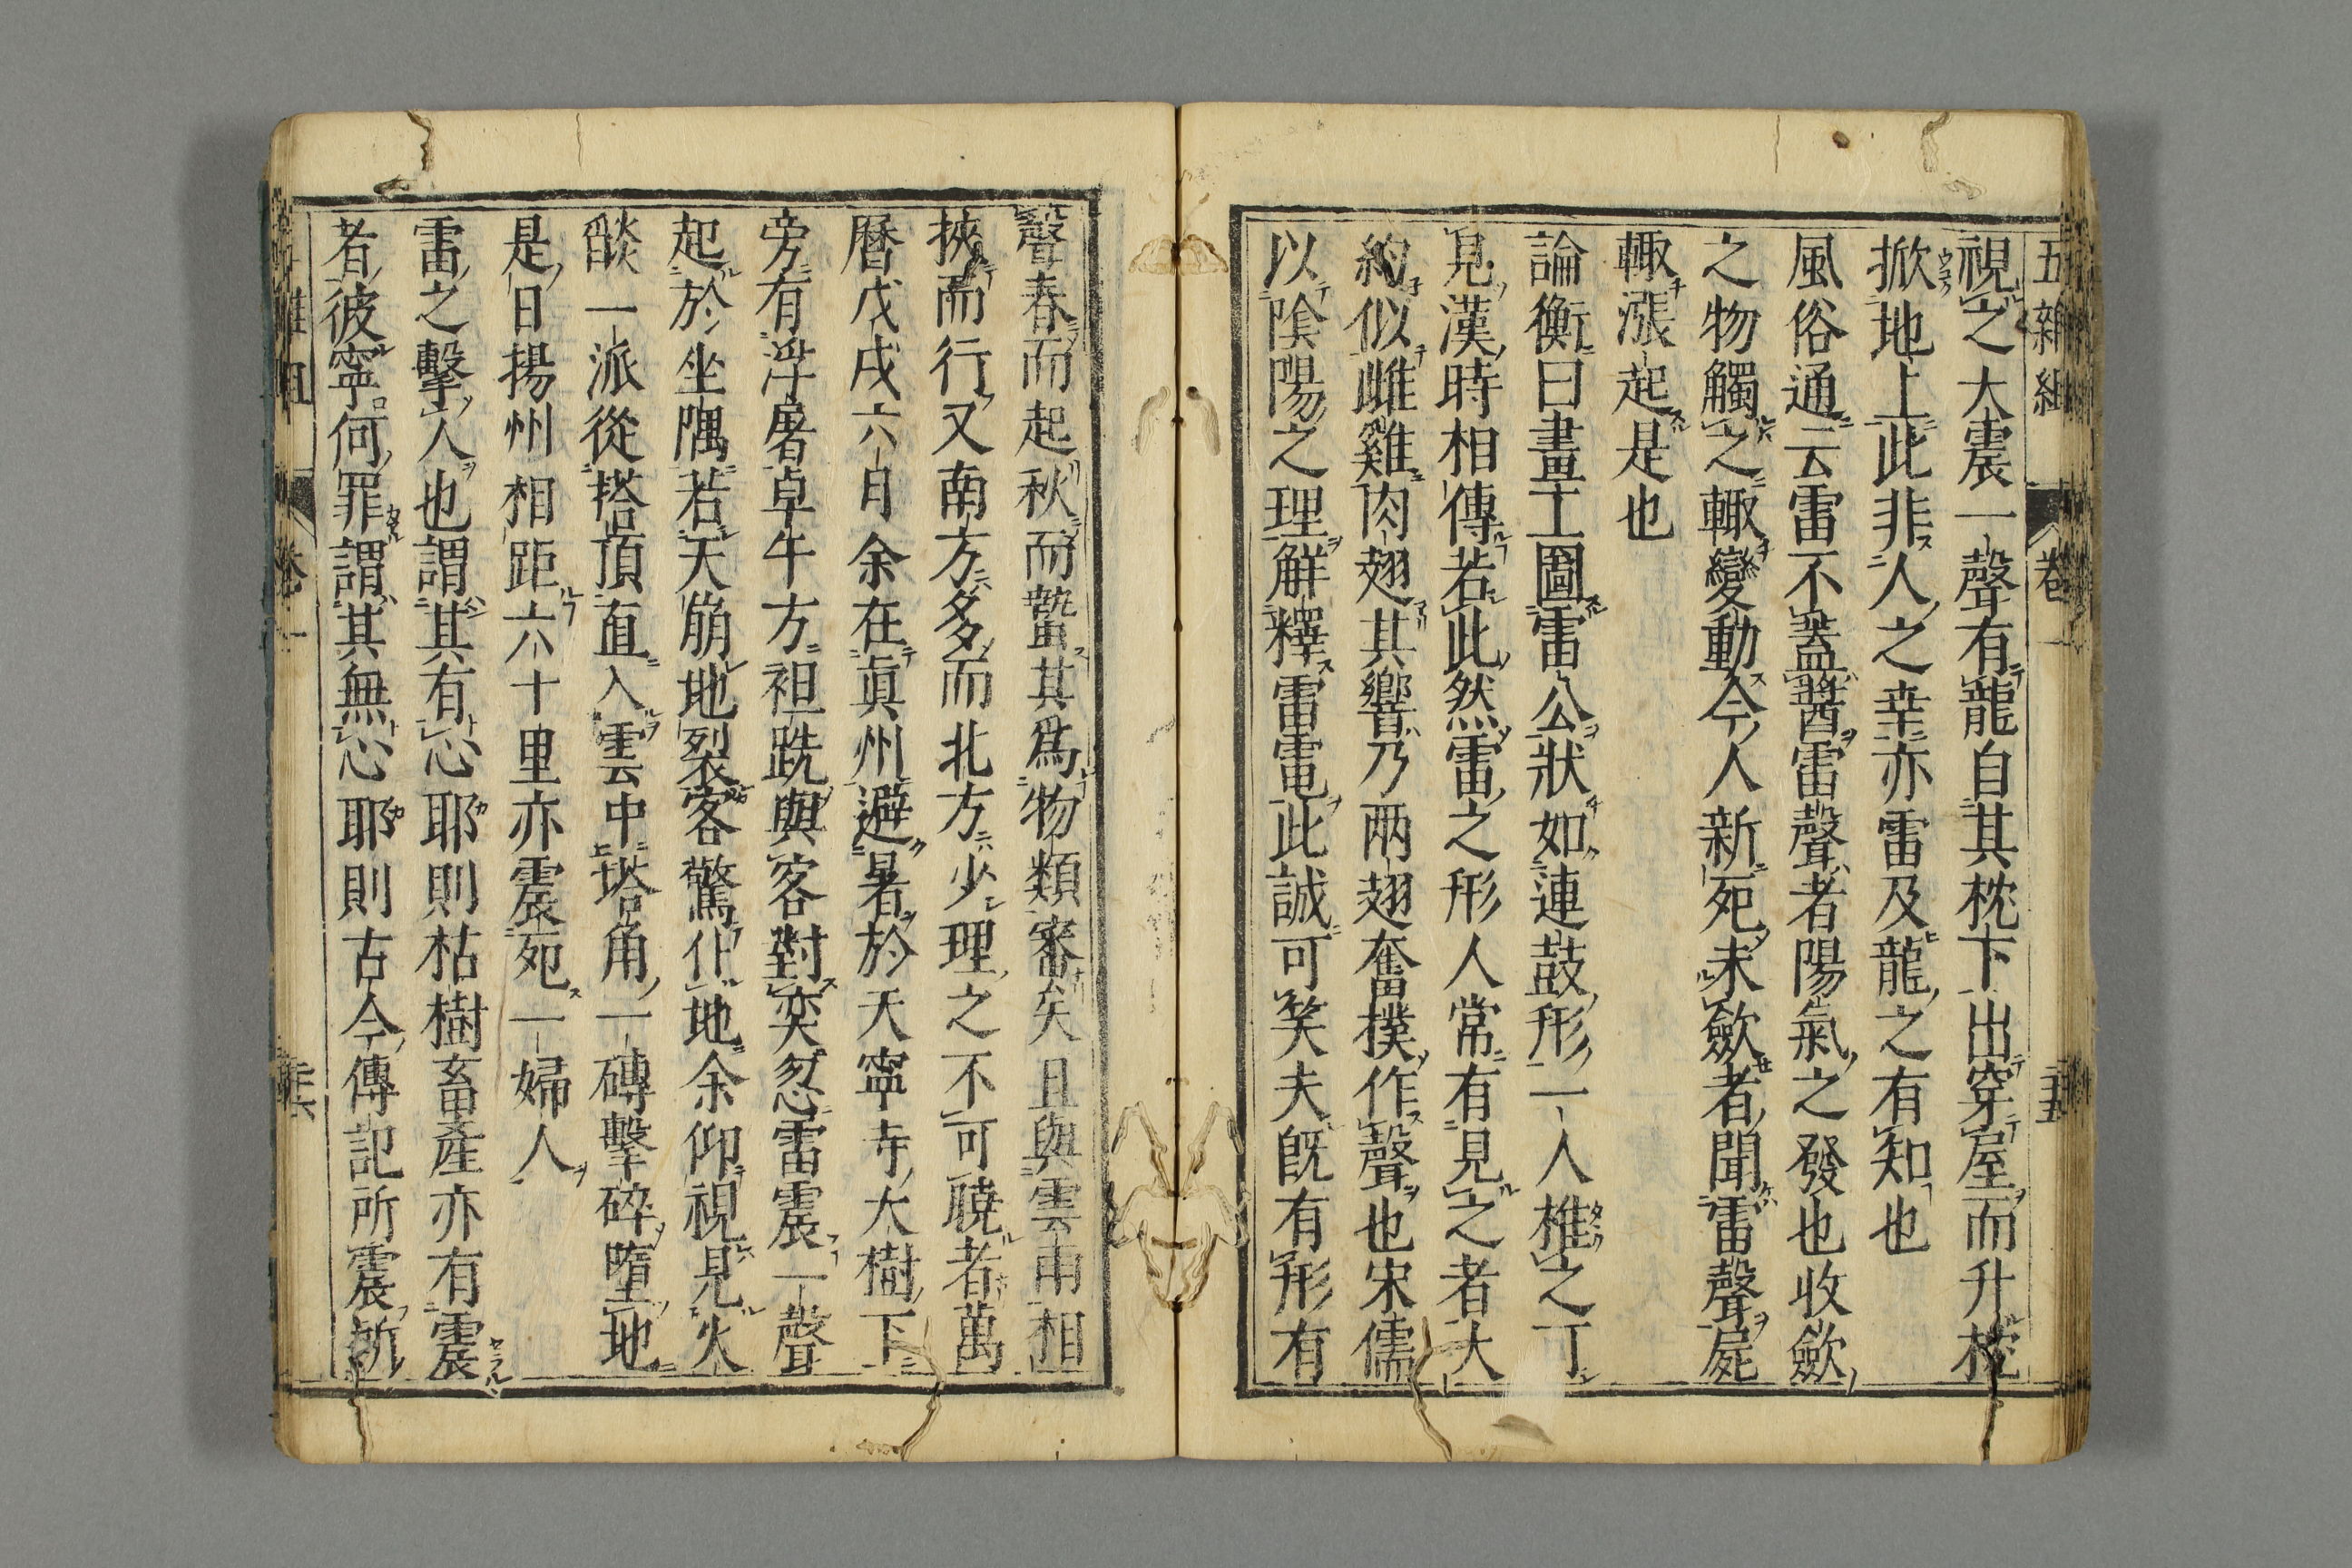 五雜組 卷一
視之大震一聲有龍自其枕下出穿屋而升枕
掀地上此非人之幸亦雷及龍之有知也
風俗通云雷不蓋醬雷聲者陽氣之發也收歛
之物觸之輙變動今人新死未歛者聞雷聲屍
輙漲起是也
論衡曰畫工圖雷公狀如連鼓形一人椎之可
見漢時相傳若此然雷之形人常有見之者大
約似雌雞肉翅其響乃两翅奮撲作聲也宋儒
以陰陽之理解釋雷電此誠可笑夫既有形有
聲春而起秋而蟄其爲物類審矣且與雲雨相
挾而行又南方多而北方少理之不可曉者萬
曆戊戌六月余在眞州避暑於天寧寺大樹下
旁有浮屠卓午方袒跣與客對奕忽雷震一聲
起於坐隅若天崩地裂客驚仆地余仰視見火
燄一派從塔頂直入雲中塔角一磚擊碎墮地
是日揚州相距六十里亦震死一婦人
雷之擊人也謂其有心耶則枯樹畜產亦有震
者彼寧何罪謂其無心耶則古今傳記所震所
卷一